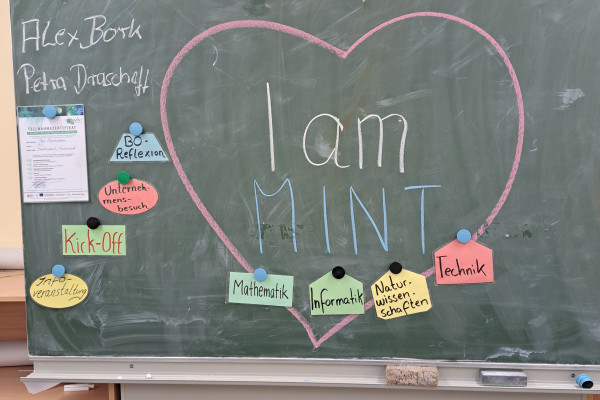 Alex Bork
Petra Draschaff
TEILNAHMEZERTIFIKAT
BO-
Reflexion
Unterneh-
mens-
besuch
Kick-Off
Info-
veranstaltung
I am
MINT
Mathematik
Informatik
Natur-
wissen-
schaften
Technik